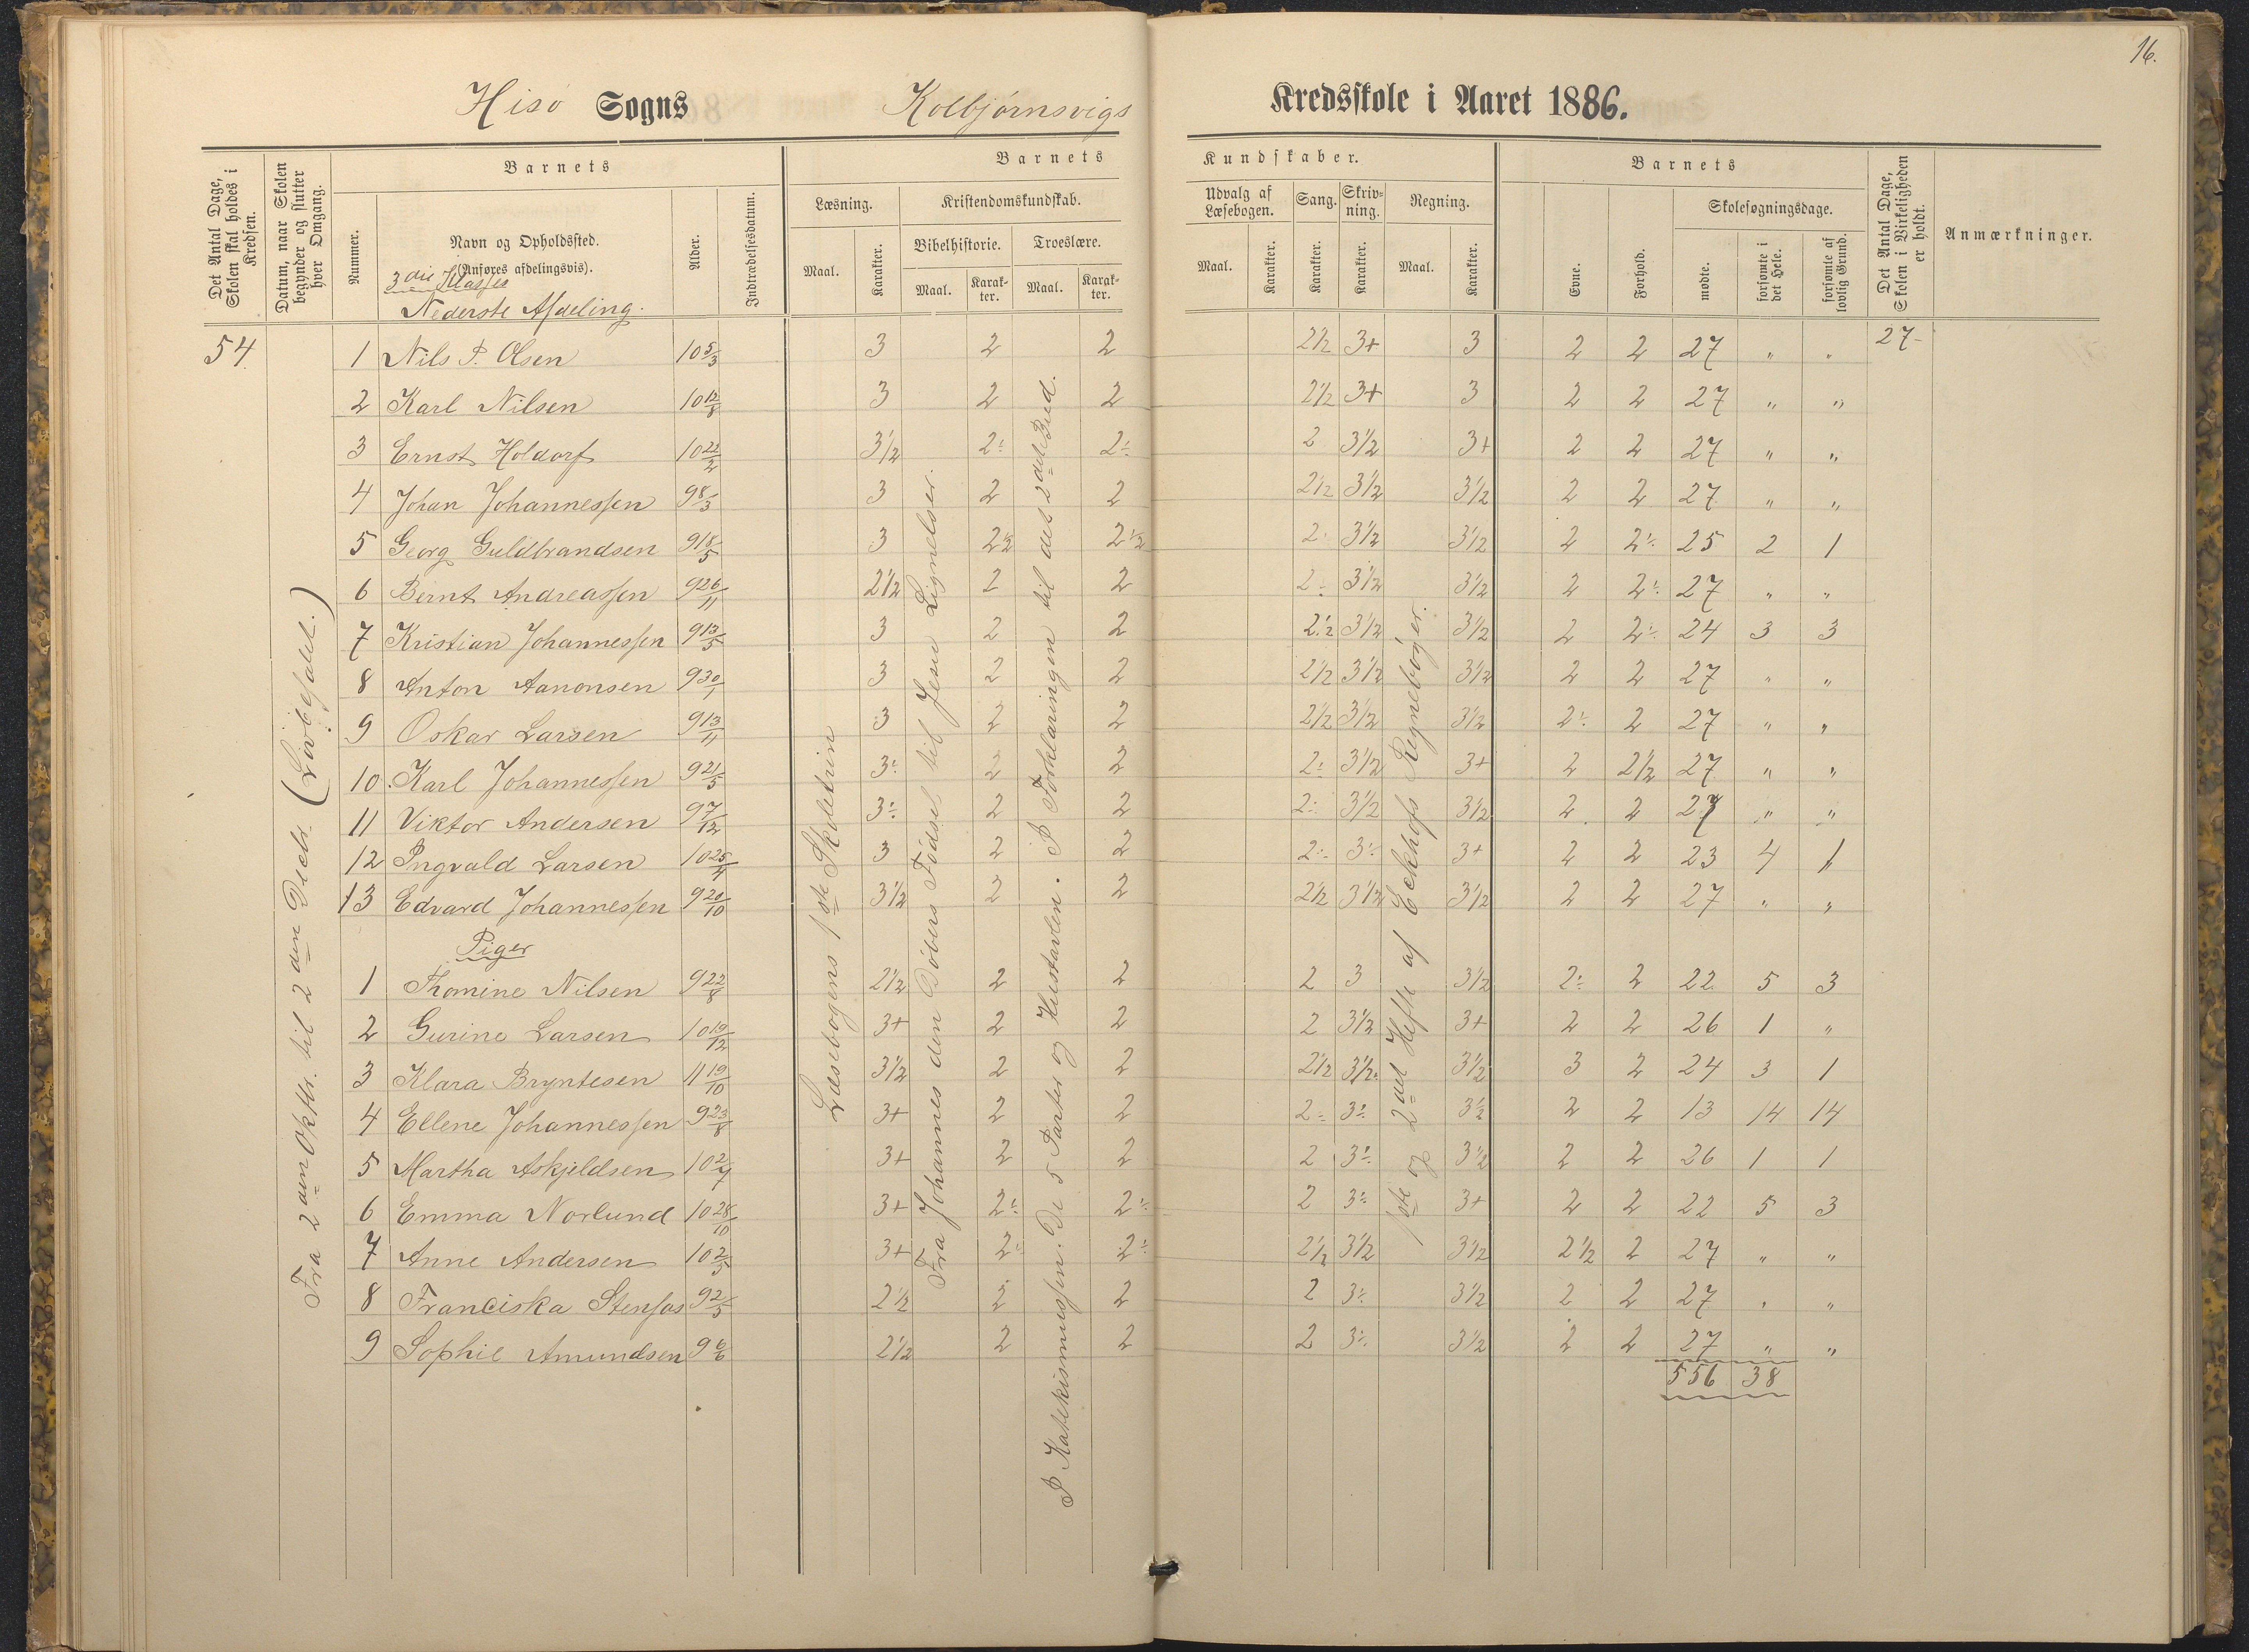 16.
Hisö Sogns Kolbjörnsvigs Kredsskole i Aaret 1886.
Det Antal Dage, Skolen skal holdes i Kredsen.
Datum, naar Skolen begynder og slutter hver Omgang.
Barnets
Nummer.
Navn og Opholdssted.
(Anføres afdelingsvis).
3die Klasses
Nederste Afdeling.
Alder.
Indtrædelsesdatum.
Barnets Kundskaber.
Læsning.
Maal.
Karakter.
Kristendomskundskab.
Bibelhistorie.
Maal.
Karakter.
Troeslære.
Maal.
Karakter.
Udvalg af Læsebogen.
Maal.
Karakter.
Sang.
Karakter.
Skrivning.
Karakter.
Regning.
Maal.
Karakter.
Barnets
Evne.
Forhold.
Skolesøgningsdage.
mødte.
forsømte i det Hele.
forsømte af lovlig Grund.
Det Antal Dage, Skolen i Virkeligheden er holdt.
Anmærkninger.
54
Fra 2den Oktbr. til 2den Decbr.
Læsebogens 1ste Skoletrin
Fra Johannes den Döbers Födsel til Jesu Lignelser.
I Katekismussen: De 5 Parter og Hustavlen. I Forklaringen til det 2det Bud.
1ste og 2det Hefte af Eckhofs Regnebøger.
1 Nils P. Olsen 10 5/3 3 2 2 2 1/2 3+ 3 2 2 27 " " 27
2 Karl Nilsen 10 12/8 3 2 2 2 1/2 3+ 3 2 2 27 " "
3 Ernst Holdorf 10 22/2 3 1/2 2÷ 2÷ 2 3 1/2 3+ 2 2 27 " "
4 Johan Johannessen 9 8/3 3 2 2 2 1/2 3 1/2 3 1/2 2 2 27 " "
5 Georg Guldbrandsen 9 18/5 3 2 1/2 2 1/2 2÷ 3 1/2 3 1/2 2 2÷ 25 2 1
6 Bernt Andreassen 9 26/11 2 1/2 2 2 2÷ 3 1/2 3 1/2 2 2÷ 27 " "
7 Kristian Johannessen 9 13/5 3 2 2 2 1/2 3 1/2 3 1/2 2 2÷ 24 3 3
8 Anton Aanonsen 9 30/1 3 2 2 2 1/2 3 1/2 3 1/2 2 2 27 " "
9 Oskar Larsen 9 13/11 3 2 2 2 1/2 3 1/2 3 1/2 2÷ 2 27 " "
10 Karl Johannessen 9 21/5 3÷ 2 2 2÷ 3 1/2 3+ 2 2 1/2 27 " "
11 Viktor Andersen 9 7/12 3÷ 2 2 2÷ 3 1/2 3 1/2 2 2 27 " "
12 Ingvald Larsen 10 25/4 3 2 2 2÷ 3÷ 3+ 2 2 23 4 1
13 Edvard Johannessen 9 20/10 3 1/2 2 2 2 1/2 3 1/2 3 1/2 2 2 27 " "
Piger
1 Thomine Nilsen 9 22/8 2 1/2 2 2 2 3 3 1/2 2÷ 2 22 5 3
2 Gurine Larsen 10 19/12 3+ 2 2 2 3 1/2 3+ 2 2 26 1 "
3 Klara Bryntesen 11 19/10 3 1/2 2 2 2 1/2 3 1/2 3 1/2 3 2 24 3 1
4 Ellene Johannessen 9 23/8 3+ 2 2 2÷ 3÷ 3 1/2 2 2 13 14 14
5 Martha Askjeldsen 10 2/7 3+ 2 2 2 3÷ 3 1/2 2 2 26 1 1
6 Emma Norlund 10 28/10 3+ 2÷ 2÷ 2 3÷ 3+ 2 2 22 5 3
7 Anne Andersen 10 2/5 3+ 2÷ 2÷ 2 1/2 3 1/2 3 1/2 2 1/2 2 27 " "
8 Franciska Stensas 9 2/5 2 1/2 2 2 2 3÷ 3 1/2 2 2 27 " "
9 Sophie Amundsen 9 6/6 2 1/2 2 2 2 3÷ 3 1/2 2 2 27 " "
556 38